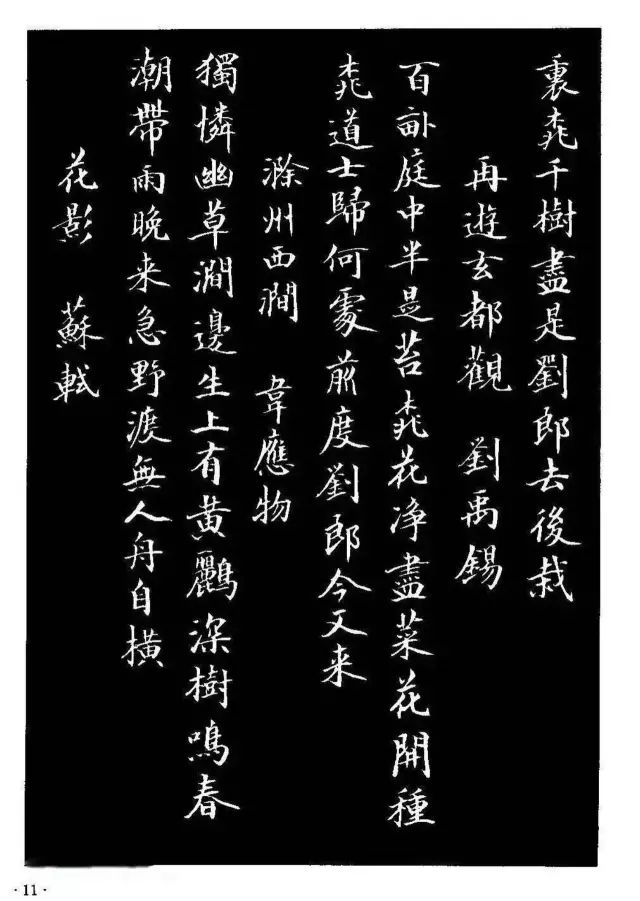 裏桃千樹盡是劉郎去後栽
再遊玄都觀 劉禹錫
百畝庭中半是苔桃花净盡菜花開種
桃道士歸何處前度劉郎今又来
滁州西澗 韋應物
獨憐幽草澗邊生上有黄鸝深樹鳴春
潮帶雨晚来急野渡無人舟自橫
花影 蘇軾
·11·